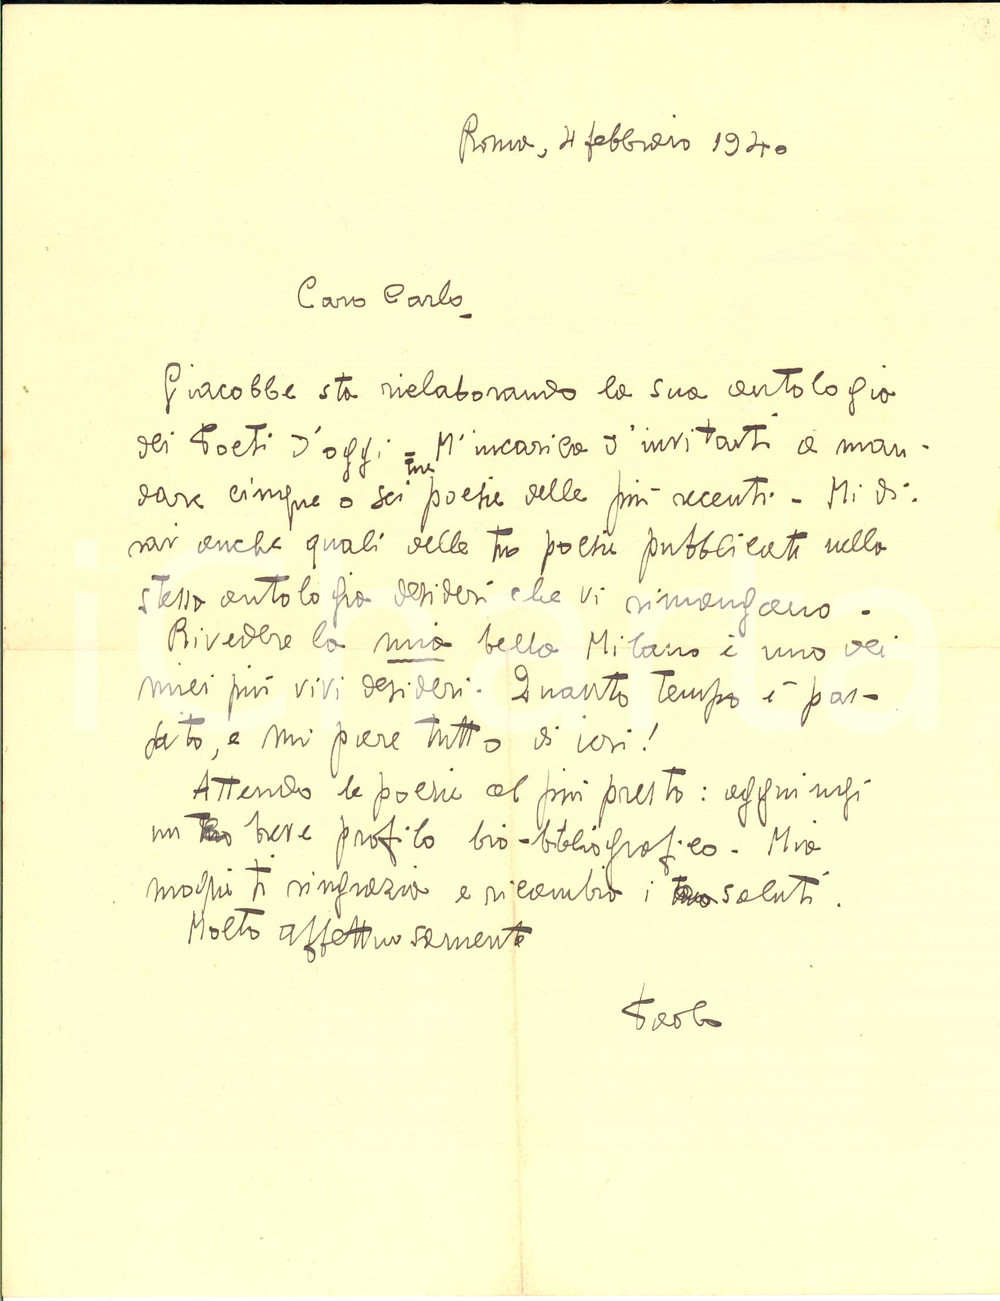 Roma, 4 febbraio 1940
Caro Carlo
Giacobbe sta rielaborando la sua antologia
dei Poeti d'oggi = M'incarica d'invitarti a man-
tue
dare cinque o sei poesie delle più recenti - Mi di-
rai anche quali delle tue poesie pubblicate nella
stessa antologia desideri che vi rimangano -
Rivedere la mia bella Milano è uno dei
miei più vivi desideri. Quanto tempo è pas-
sato, e mi pare tutto di ieri!
Attendo le poesie al più presto: aggiungi
un breve profilo bio-bibliografico - Mia
moglie ti ringrazia e ricambia i saluti.
Molto affettuosamente
Paolo